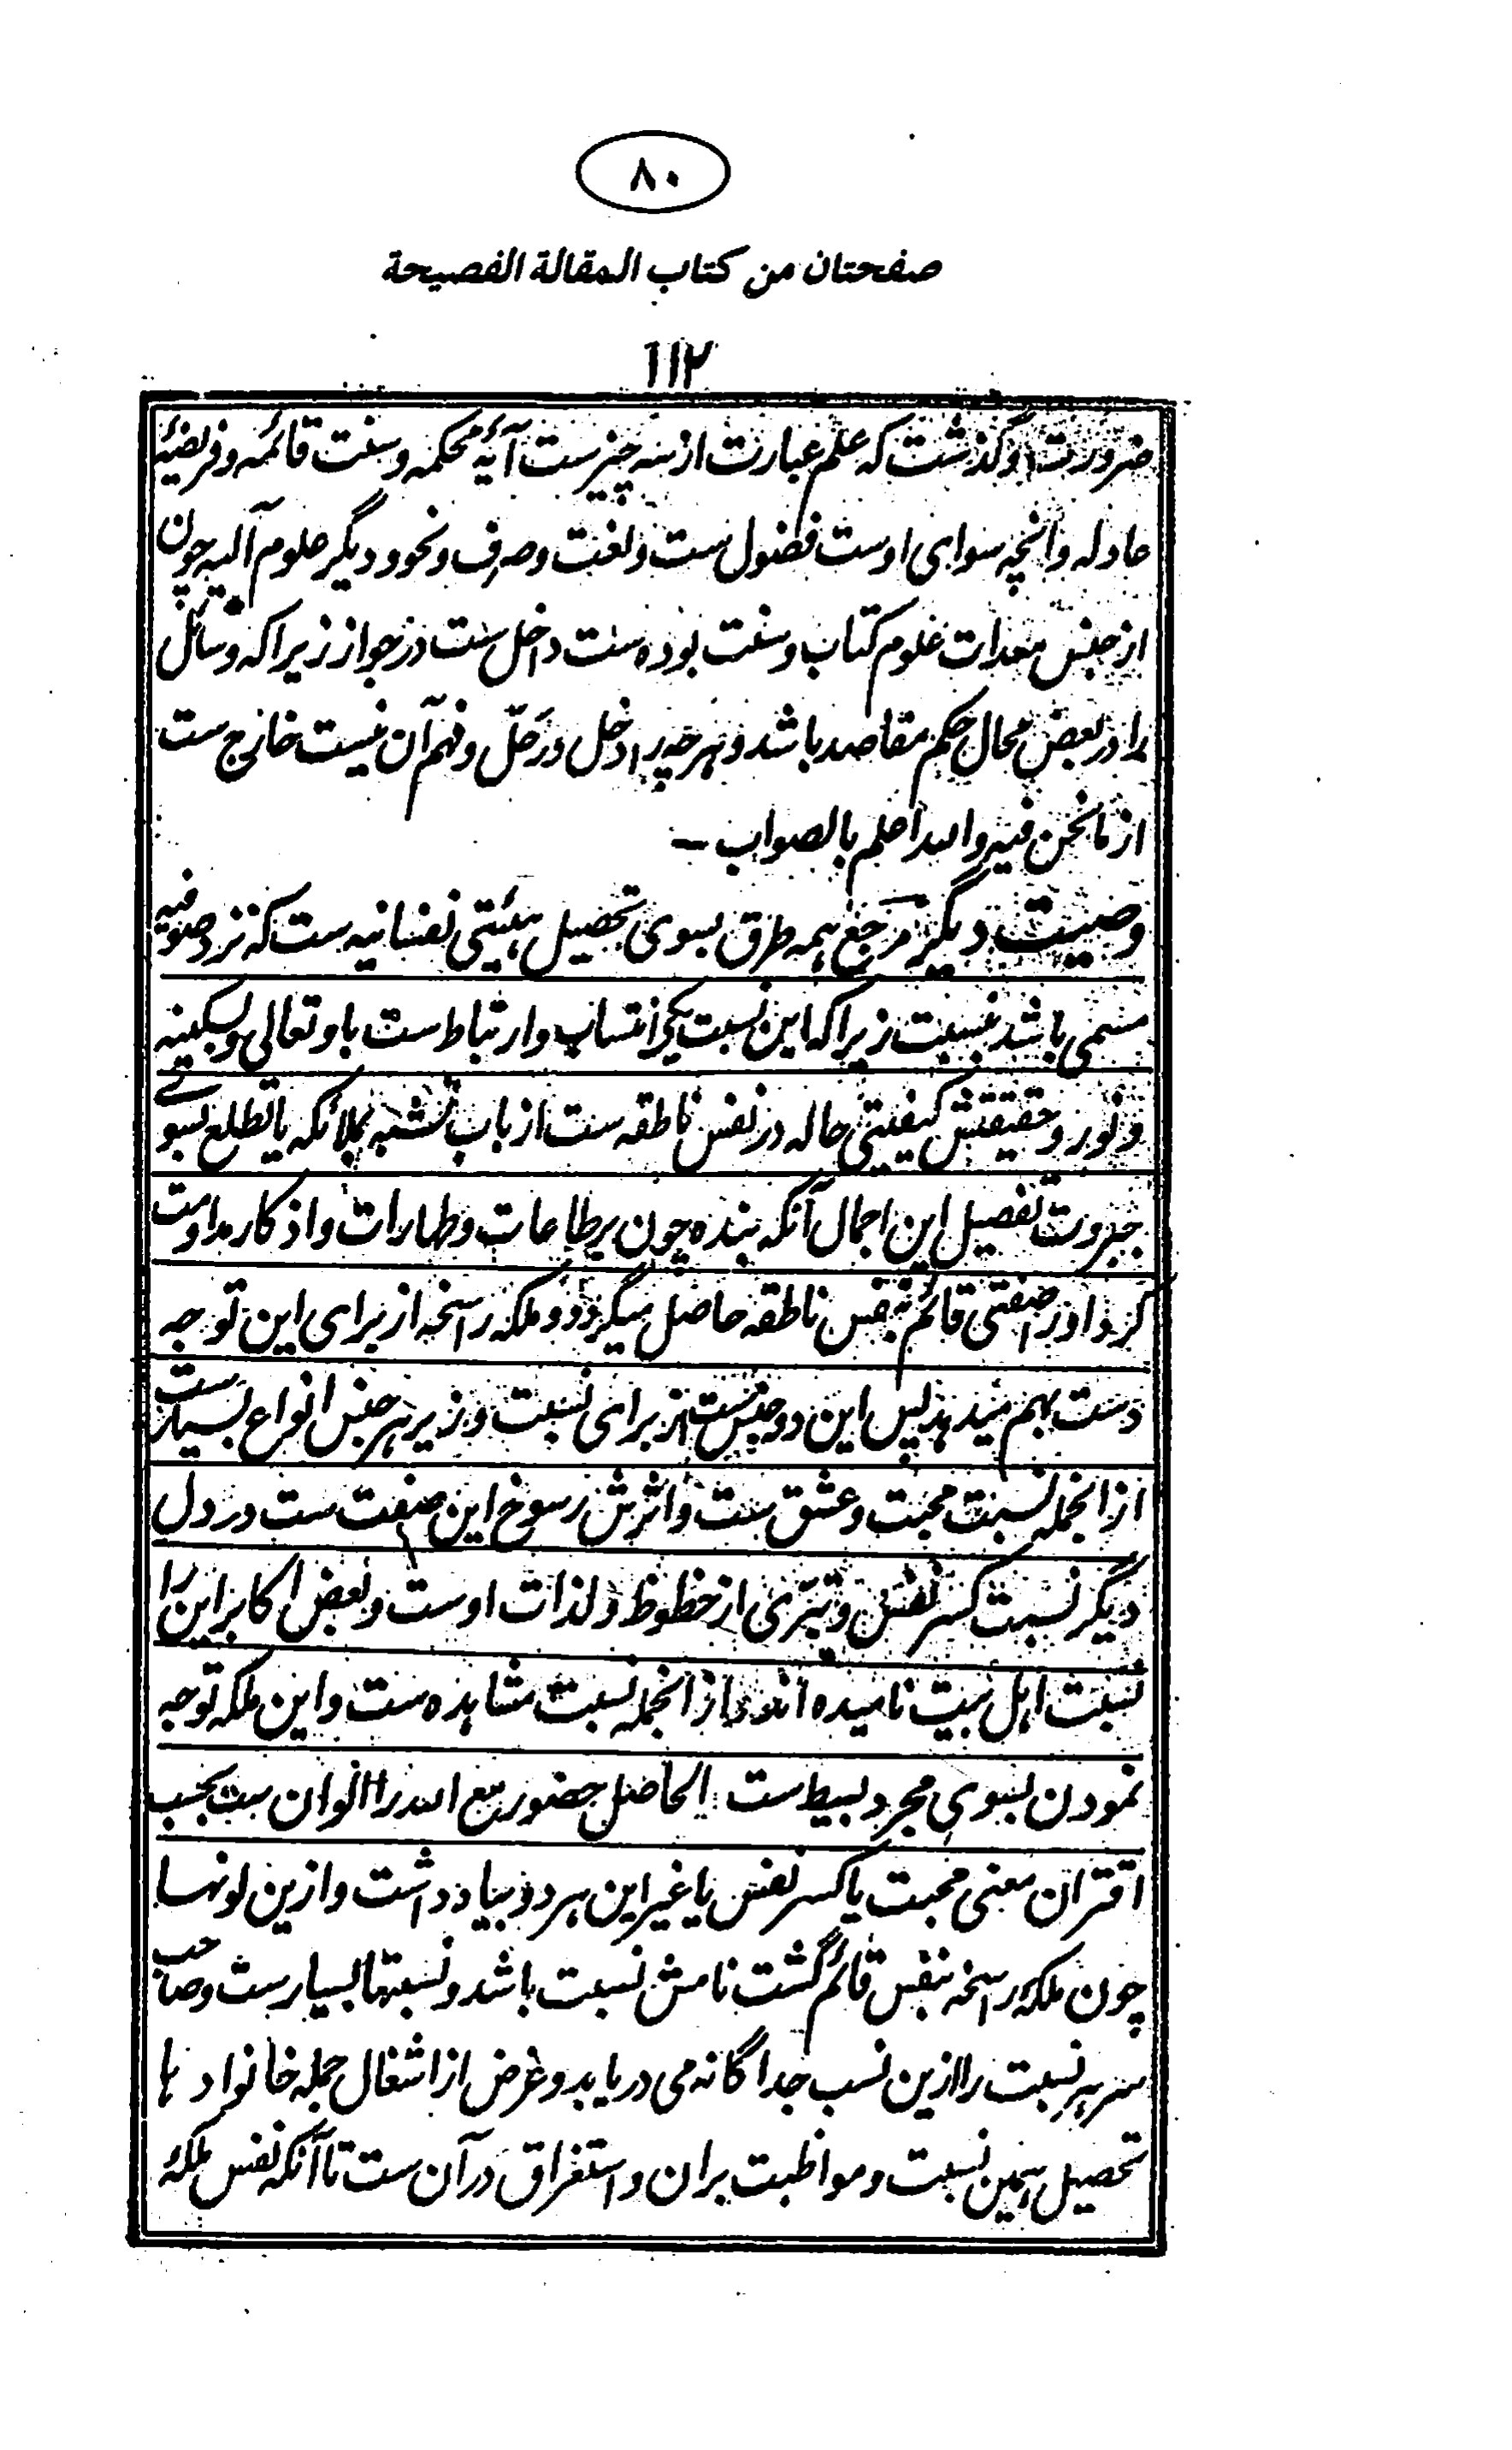 ٨٠
صفحتان من كتاب المقالة الفصيحة
١١٢
ضرورت او گذشت که علم عبارت از سه چیزست آیهٔ محکمه و سنت قائمه و فریضهٔ
عادله وانچه سوای اوست فضول ست و لغت و صرف و نحو و دیگر علوم آلیه چون
از جنس معدات علوم کتاب و سنت بوده ست داخل ست در جواز زیراکه وسائل
را در بعض محال حکم مقاصد باشد و هر چه را دخل در حل و فهم آن نیست خارج ست
از ما نحن فیه والله اعلم بالصواب –
وصیت دیگر مرجع همه طرق بسوی تحصیل هیئتی نفسانیه ست که نزد صوفیه
مسمی باشد بنسبت زیراکه این نسبت یکی انتساب و ارتباط ست باو تعالی و بسکینه
و نور و حقیقتش کیفیتی حاله در نفس ناطقه ست از باب تشبه بملائکه یا تطلع بسوے
جبروت تفصیل این اجمال آنکه بنده چون بر طاعات و طهارات و اذکار مداومت
کرد او را صفتی قائم بنفس ناطقه حاصل میگردد و ملکه راسخه از برای این توجه
دست بهم میدهد پس این دو جنس ست از برای نسبت و زیر هر جنس انواع بسیارست
ازانجمله نسبت محبت و عشق ست و اثرش رسوخ این صفت ست در دل
دیگر نسبت کسر نفس و تبری از حظوظ و لذات اوست و بعض اکابر این را
نسبت اهل بیت نامیده اند و ازانجمله نسبت مشاهده ست و این ملکه توجه
نمودن بسوی مجرد بسیط ست الحاصل حضور مع الله را الوان ست بحسب
اقتران معنی محبت یا کسر نفس یا غیر این هر دو بیاد داشت و ازین لونها
چون ملکهٔ راسخه بنفس قائم گشت نامش نسبت باشد و نسبتها بسیارست و صاحب
سر هر نسبت را ازین نسب جداگانه می دریابد و غرض از اشغال جمله خانواده ها
تحصیل همین نسبت و مواظبت بران و استغراق در آن ست تا آنکه نفس ملکهٔ